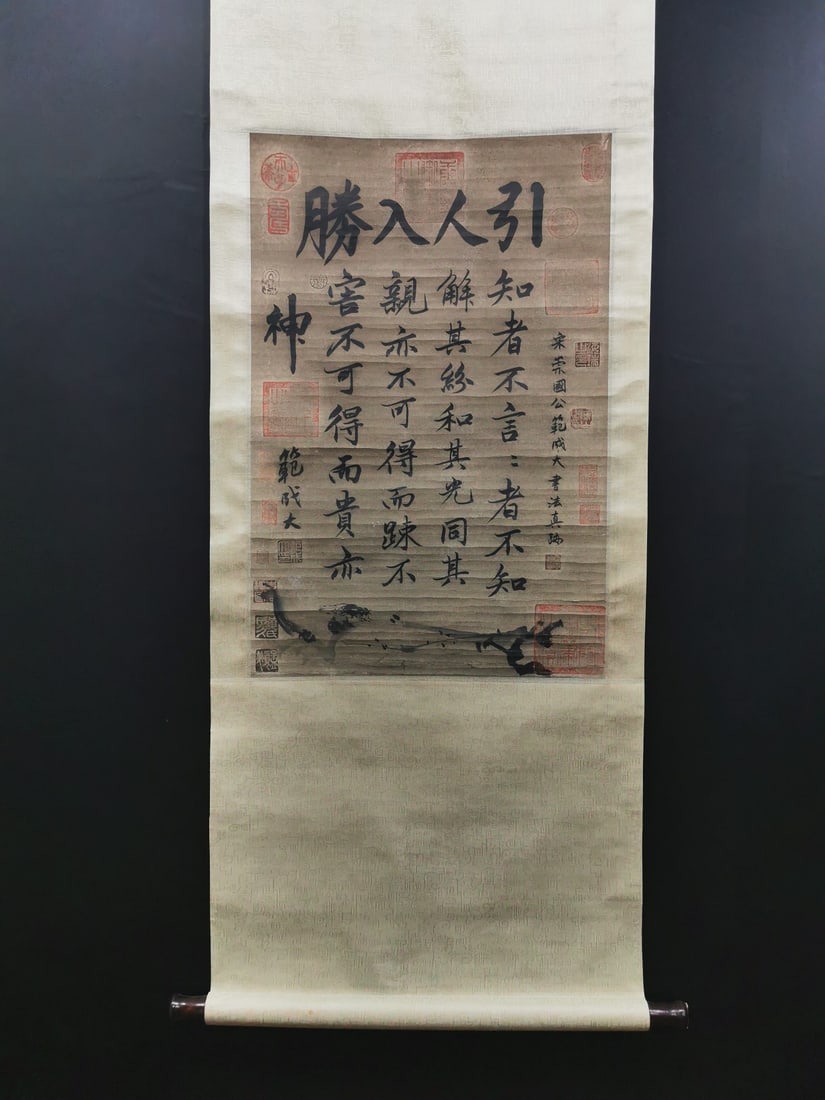 引人入勝
宋崇國公範成大書法真跡
知者不言〻者不知
解其紛和其光同其
親亦不可得而踈不
害不可得而貴亦
神
範成大